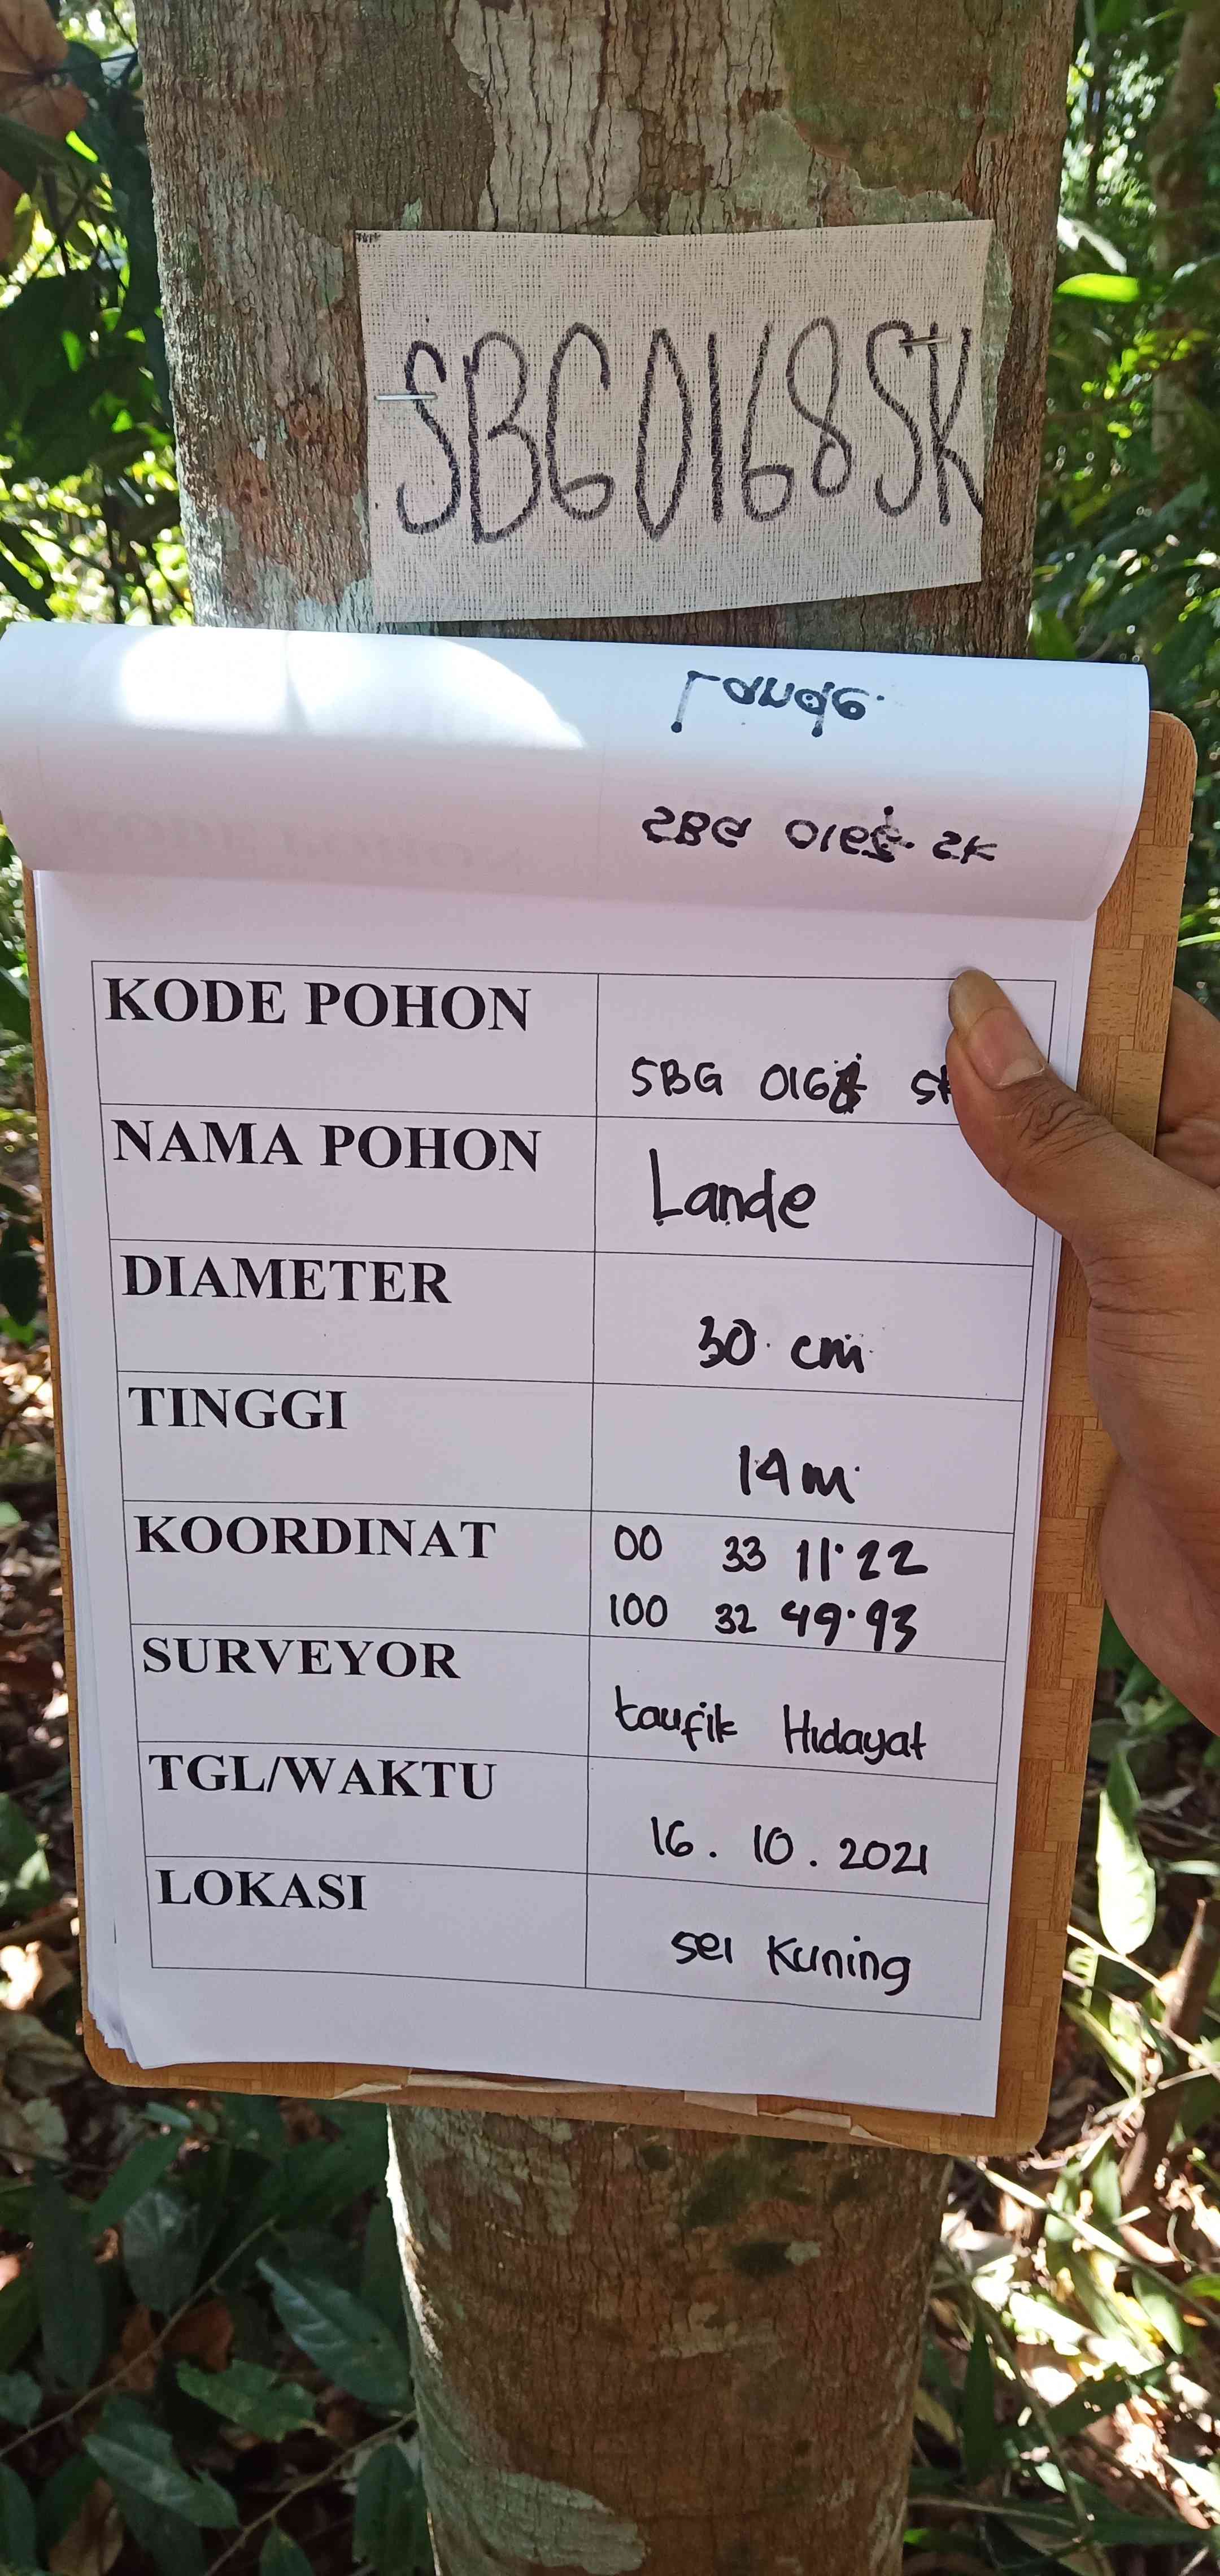 SBG0168SK
KODE POHON
SBG 0168 SK
NAMA POHON
Lande
DIAMETER
30 cm
TINGGI
14 m
KOORDINAT
00 33 11.22
100 32 49.93
SURVEYOR
taufik Hidayat
TGL/WAKTU
16. 10. 2021
LOKASI
sei Kuning